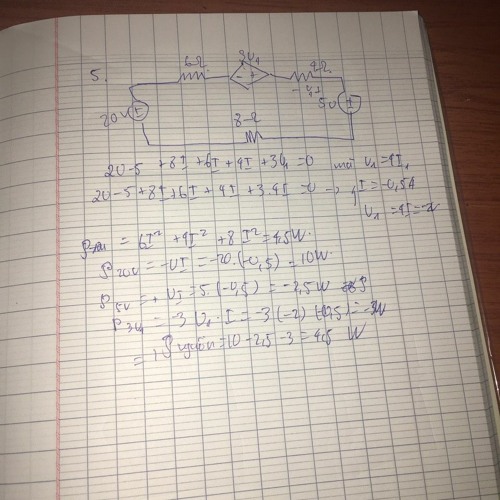 5.
6Ω
3U₁
4Ω
- +
- U₁ +
5V
20V
8Ω
20-5 +8I +6I +4I +3U₁ =0 U₁ = 4I₁
20-5+8I+6I+4I+3.4I=0 → I=-0,5A
U₁ = 4I=-2V
= 6I² +4I² +8I² = 4,5W.
P20V = -UI = -20.(-0,5) = 10W.
P5V = + UI = 5.(-0,5) = -2,5W
P3U₁ = -3U₁.I = -3(-2)(-0,5) = -3W
=) P =10-2,5-3 = 4,5 W